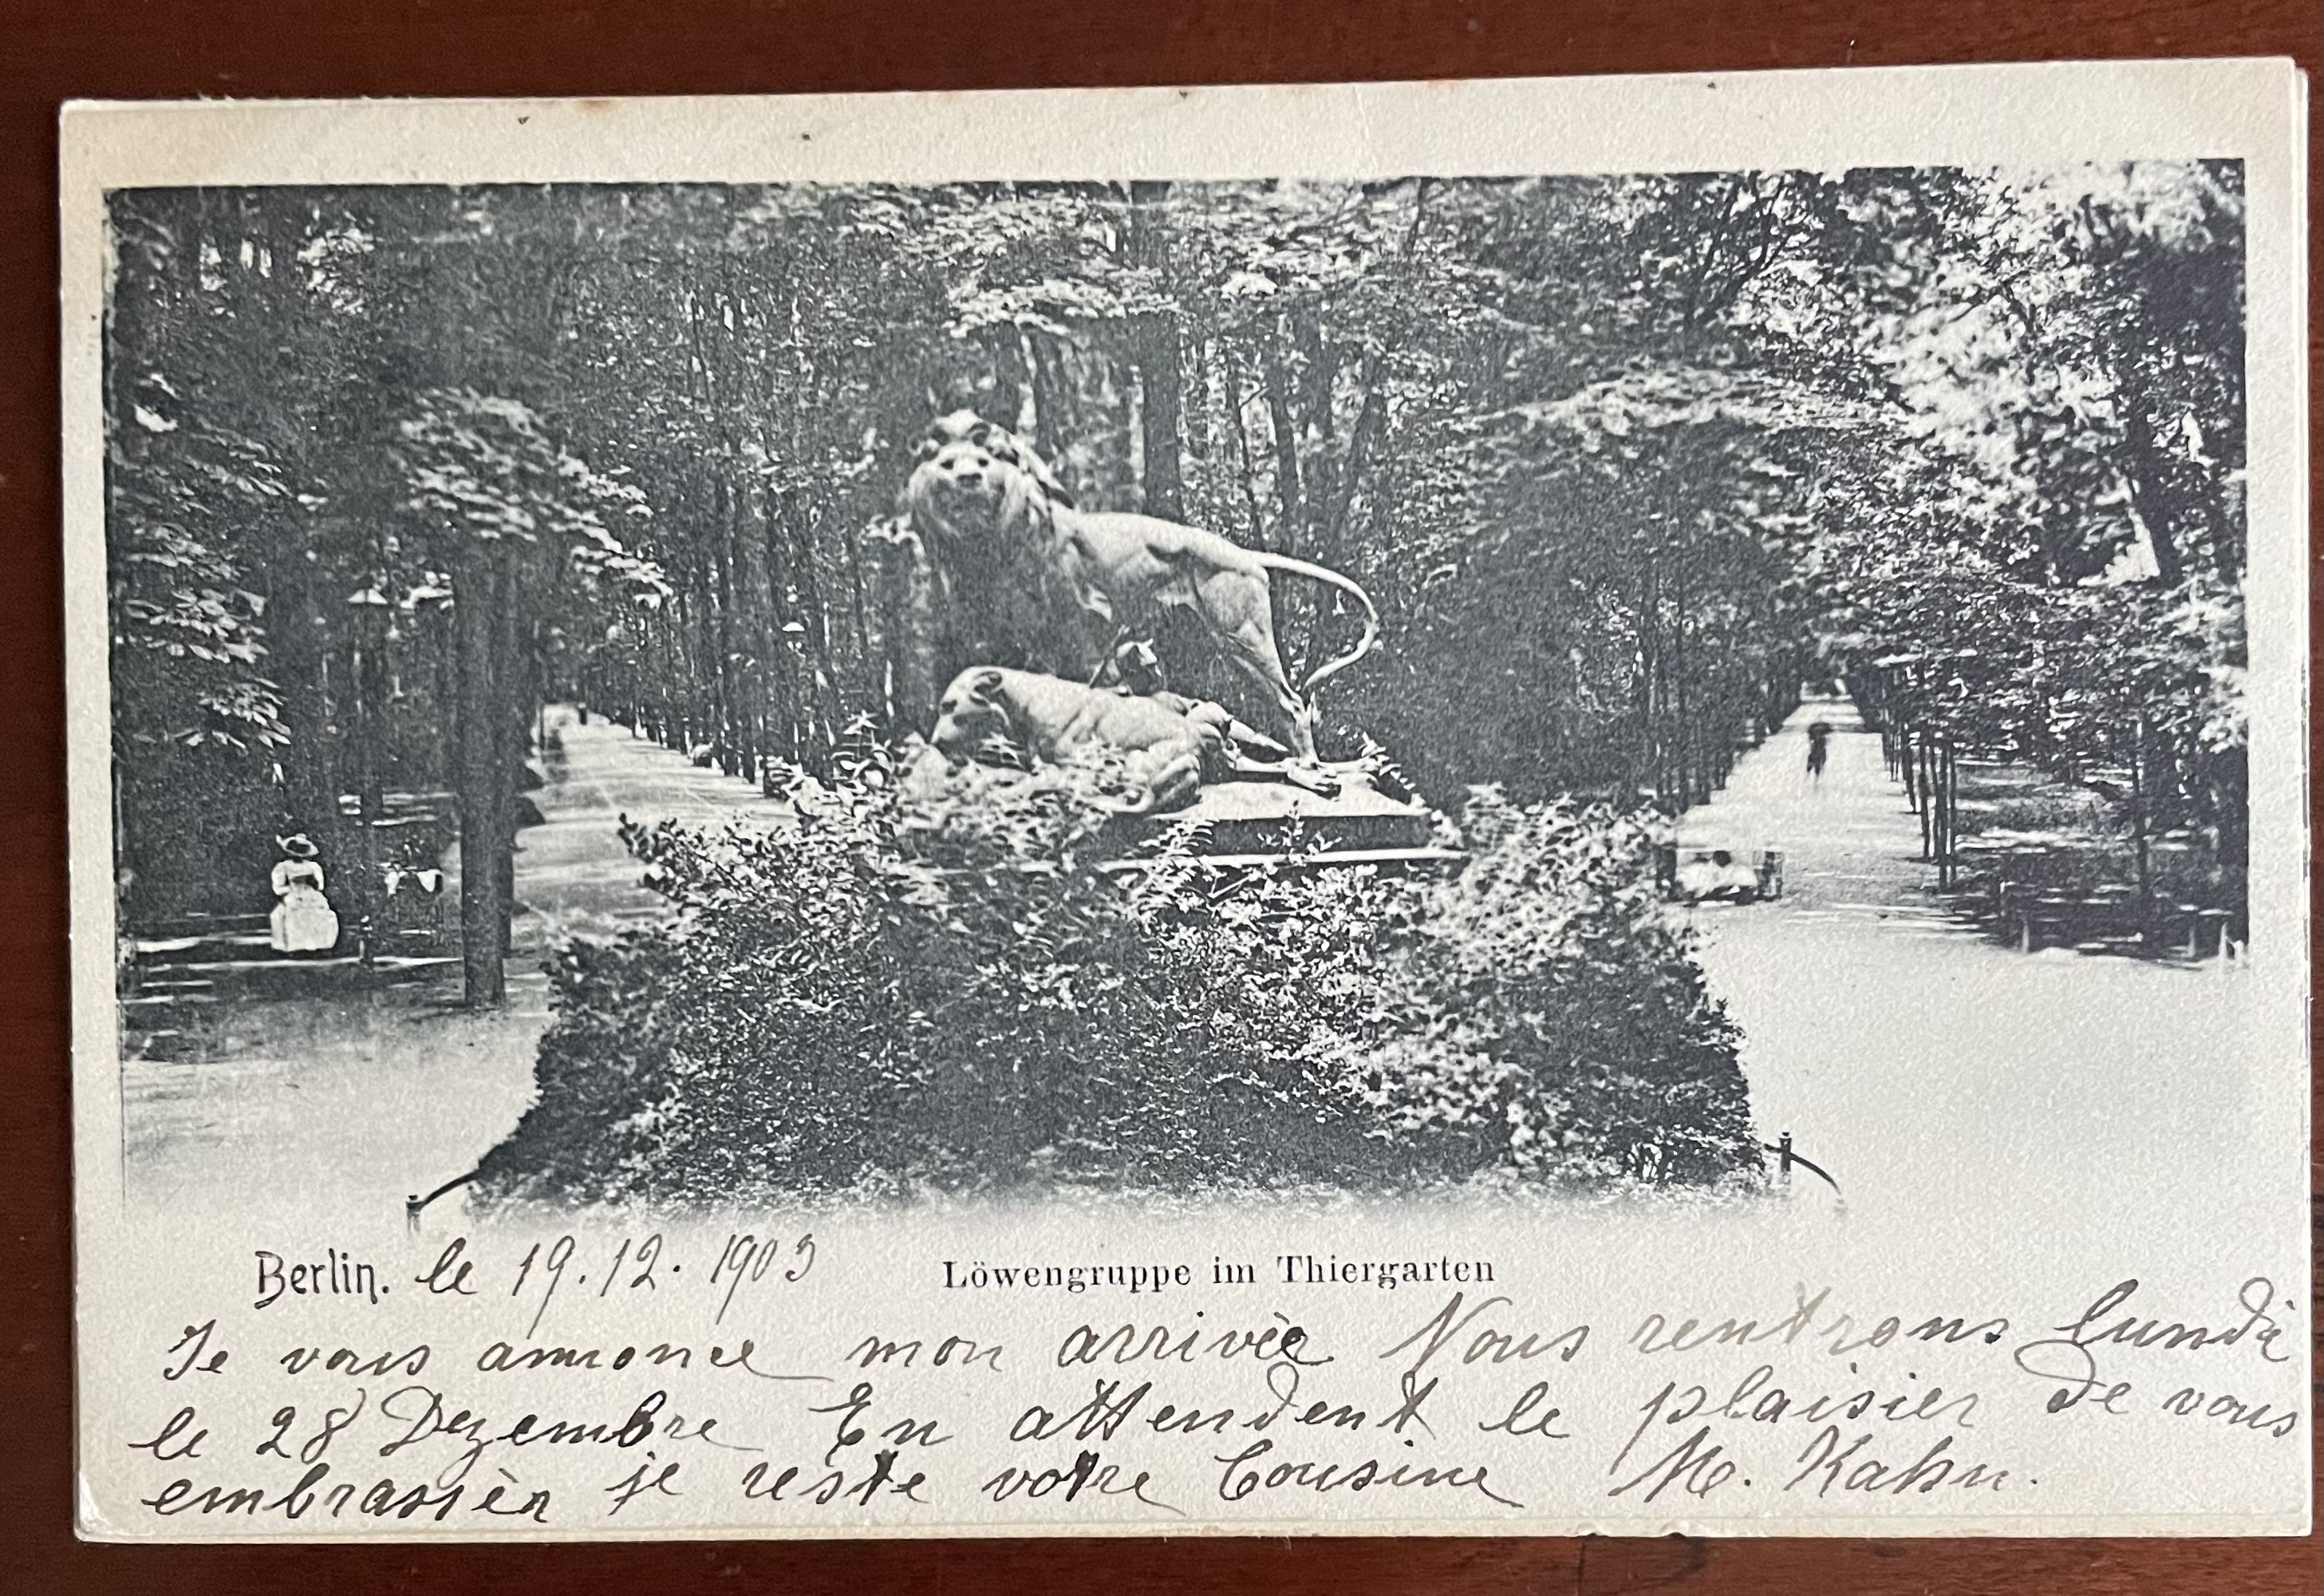 Berlin. le 19.12.1903 Löwengruppe im Thiergarten
Je vous annonce mon arrivèe Nous rentrons lundi
le 28 Dezembre En attendent le plaisier de vous
embrassèr je reste votre Cousine M. Kahn.